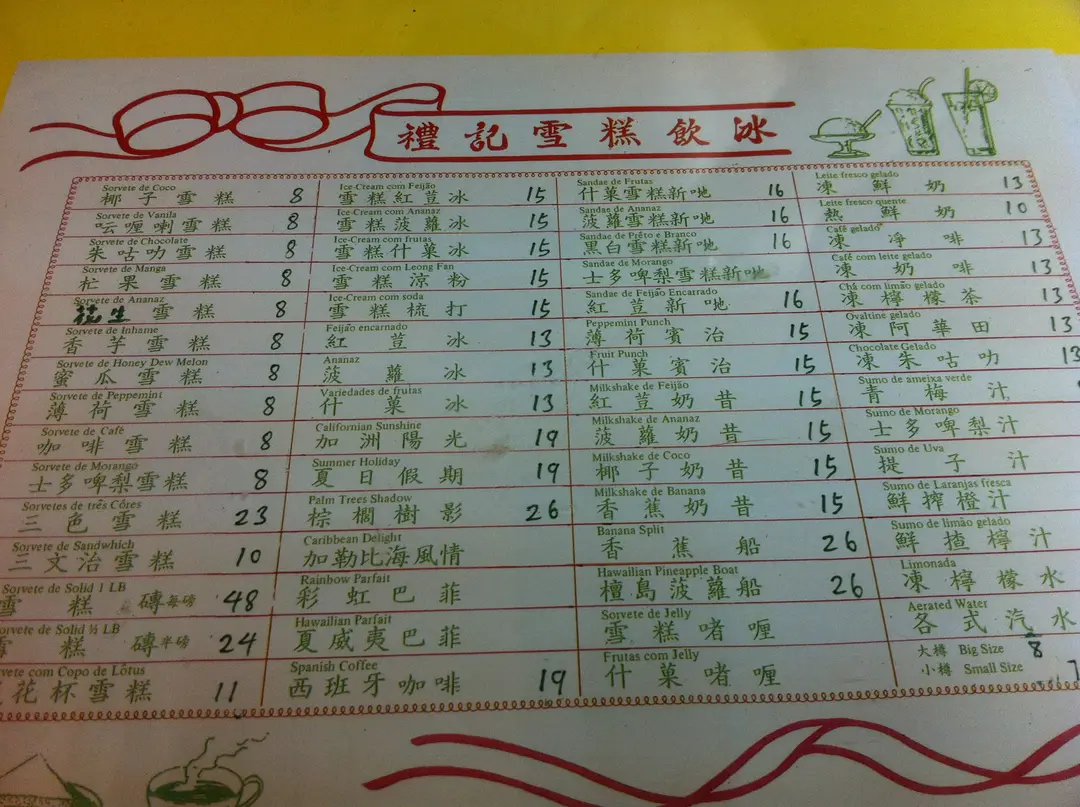 禮記雪糕飲冰
Sorvete de Coco
椰子雪糕 8
Sorvete de Vanila
呍喱喇雪糕 8
Sorvete de Chocolate
朱咕叻雪糕 8
Sorvete de Manga
杧果雪糕 8
Sorvete de Ananaz
花生雪糕 8
Sorvete de Inhame
香芋雪糕 8
Sorvete de Honey Dew Melon
蜜瓜雪糕 8
Sorvete de Peppemint
薄荷雪糕 8
Sorvete de Café
咖啡雪糕 8
Sorvete de Morango
士多啤梨雪糕 8
Sorvetes de três Côres
三色雪糕 23
Sorvete de Sandwhich
三文治雪糕 10
Sorvete de Solid 1 LB
雪糕磚每磅 48
Sorvete de Solid ½ LB
雪糕磚半磅 24
Sorvete com Copo de Lótus
花杯雪糕 11
Ice-Cream com Feijão
雪糕紅荳冰 15
Ice-Cream com Ananaz
雪糕菠蘿冰 15
Ice-Cream com frutas
雪糕什菓冰 15
Ice-Cream com Leong Fan
雪糕涼粉 15
Ice-Cream com soda
雪糕梳打 15
Feijão encarnado
紅荳冰 13
Ananaz
菠蘿冰 13
Variedades de frutas
什菓冰 13
Californian Sunshine
加洲陽光 19
Summer Holiday
夏日假期 19
Palm Trees Shadow
棕櫚樹影 26
Caribbean Delight
加勒比海風情
Rainbow Parfait
彩虹巴菲
Hawailian Parfait
夏威夷巴菲
Spanish Coffee
西班牙咖啡 19
Sandae de Frutas
什菓雪糕新哋 16
Sandae de Ananaz
菠蘿雪糕新哋 16
Sandae de Prêto e Branco
黑白雪糕新哋 16
Sandae de Morango
士多啤梨雪糕新哋
Sandae de Feijão Encarrado
紅荳新哋 16
Peppemint Punch
薄荷賓治 15
Fruit Punch
什菓賓治 15
Milkshake de Feijão
紅荳奶昔 15
Milkshake de Ananaz
菠蘿奶昔 15
Milkshake de Coco
椰子奶昔 15
Milkshake de Banana
香蕉奶昔 15
Banana Split
香蕉船 26
Hawailian Pineapple Boat
檀島菠蘿船 26
Sorvete de Jelly
雪糕啫喱
Frutas com Jelly
什菓啫喱
Leite fresco gelado
凍鮮奶 13
Leite fresco quente
熱鮮奶 10
Café gelado
凍凈啡 13
Café com leite gelado
凍奶啡 13
Chá com limão gelado
凍檸檬茶 13
Ovaltine gelado
凍阿華田 13
Chocolate Gelado
凍朱咕叻 13
Sumo de ameixa verde
青梅汁
Sumo de Morango
士多啤梨汁
Sumo de Uva
提子汁
Sumo de Laranjas fresca
鮮搾橙汁
Sumo de limão gelado
鮮揸檸汁
Limonada
凍檸檬水
Aerated Water
各式汽水
大樽 Big Size 8
小樽 Small Size 7